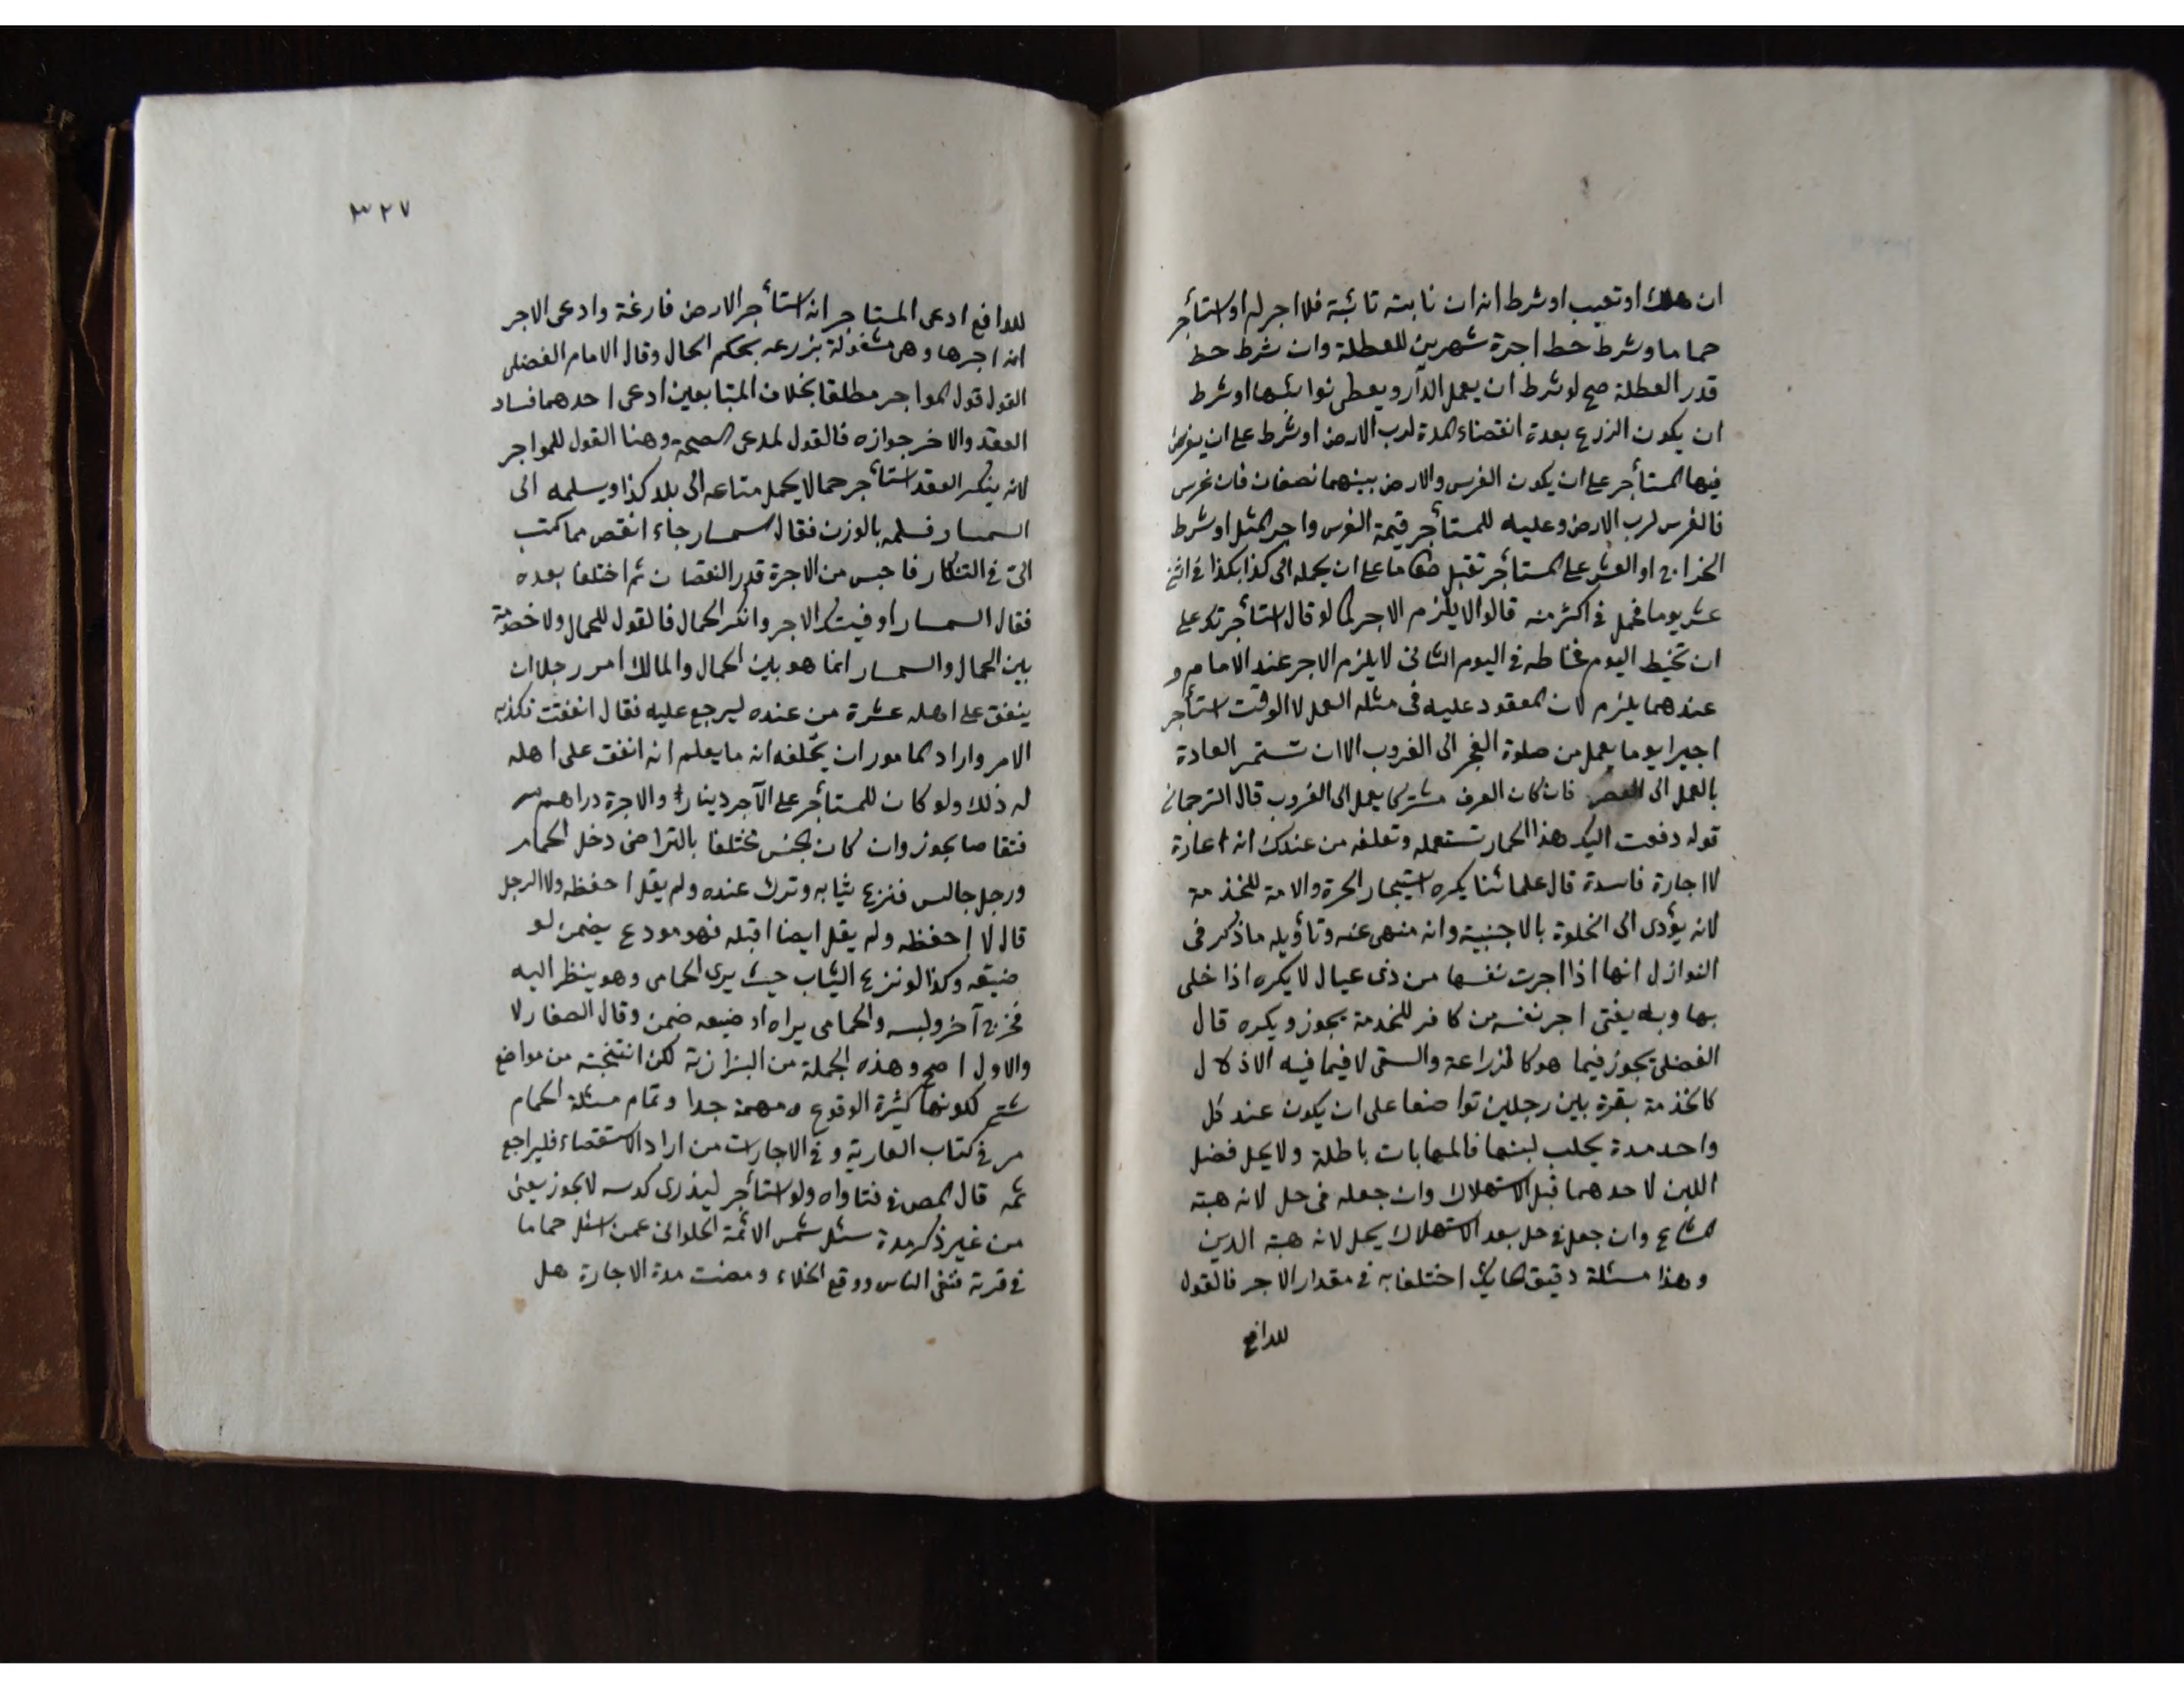 ان هلك او تعيب او شرط انه ان نابته نائبة فلا اجر له او استأجر
حماما وشرط حط اجرة شهرين للعطلة وان شرط حط
قدر العطلة صح لو شرط ان يعمل الدار ويعطى نوائبها او شرط
ان يكون الزرع بعدة انقضاء المدة لرب الارض او شرط على ان يغرس
فيها المستأجر على ان يكون الغرس والارض بينهما نصفان فان غرس
فالغرس لرب الارض وعليه للمستأجر قيمة الغرس واجر المثل او شرط
الخراج او العشر على المستأجر تقبل طعاما على ان يحمله الى كذا بكذا في اثنى
عشر يوما فحمل في اكثر منه قالوا لا يلزم الاجر كما لو قال استأجرتك على
ان تخيط اليوم فخاطه في اليوم الثانى لا يلزم الاجر عند الامام و
عندهما يلزم لان المعقود عليه فى مثله العمل لا الوقت استأجر
اجيرا يوما يعمل من صلوة الفجر الى الغروب الا ان تستمر العادة
بالعمل الى العصر فان كان العرف مشتركا يعمل الى الغروب قال الترجمانى
قوله دفعت اليك هذا الحمار تستعمله وتعلفه من عندك انه اعارة
لا اجارة فاسدة قال علمائنا يكره استيجار الحرة والامة للخدمة
لانه يؤدى الى الخلوة بالاجنبية وانه منهى عنه وتأويله ما ذكر فى
النوازل انها اذا اجرت نفسها من ذى عيال لا يكره اذا خلى
بها وبه يفتى اجر نفسه من كافر للخدمة يجوز ويكره قال
الفضلى يجوز فيما هو كالزراعة والسقى لا فيما فيه الاذلال
كالخدمة بقرة بين رجلين تواضعا على ان يكون عند كل
واحد مدة يحلب لبنها فالمهابات باطلة ولا يحل فضل
اللبن لاحدهما قبل الاستهلاك وان جعله فى حل لانه هبة
المشاع وان جعل فى حل بعد الاستهلاك يحل لانه هبة الدين
وهذا مسئلة دقيق اختلفا به فى مقدار الاجر فالقول
للدافع
٣٢٧
للدافع ادعى المستاجر انه استأجر الارض فارغة وادعى الاجر
انه اجرها وهى مشغولة بزرعه يحكم الحال وقال الامام الفضلى
القول قول المواجر مطلقا بخلاف المتبايعين ادعى احدهما فساد
العقد والاخر جوازه فالقول لمدعى الصحة وهنا القول للمواجر
لانه ينكر العقد استأجر حمالا يحمل متاعه الى بلد كذا ويسلمه الى
السمسار فسلمه بالوزن فقال السمسار جاء انقص مما كتب
الىّ فى التذكار فاحبس من الاجرة قدر النقصان ثم اختلفا بعده
فقال السمسار اوفيتك الاجر وانكر الحمال فالقول للحمال ولا خصومة
بين الحمال والسمسار انما هو بين الحمال والمالك امر رجلا ان
ينفق على اهله عشرة من عنده ليرجع عليه فقال انفقت فكذبه
الامر واراد المامور ان يحلفه انه ما يعلم انه انفق على اهله
له ذلك ولو كان للمستأجر على الآجر دينار والاجرة دراهم
فتقاصا يجوز وان كان الجنس مختلفا بالتراضى دخل الحمام
ورجل جالس فنزع ثيابه وترك عنده ولم يقل احفظه ولا الرجل
قال لا احفظه ولم يقل ايضا اقبله فهو مودع يضمن لو
ضيعه وكذا لو نزع الثياب حيث يرى الحمامى وهو ينظر اليه
فخرج آخر ولبسه والحمامى يراه اذ ضيعه ضمن وقال الصفار لا
والاول اصح وهذه الجملة من البزازية لكن انتخبته من مواضع
شتى لكونها كثيرة الوقوع ومهمة جدا وتمام مسئلة الحمام
مر فى كتاب العارية وفى الاجارات من اراد الاستقصاء فليراجع
ثمه قال المص فى فتاواه ولو استأجر ليذرى كدسه لا يجوز يعنى
من غير ذكر مدة سئل شمس الائمة الحلوانى عمن حماما
فى قرية فنفى الناس ووقع الخلاء ومضت مدة الاجارة هل